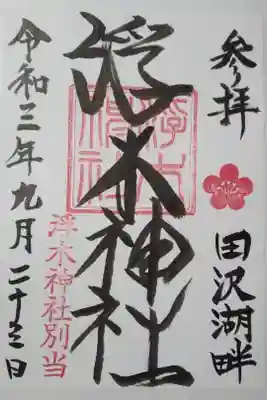 参り拝
田沢湖畔
浮木神社
浮木神社別当
令和三年九月二十三日